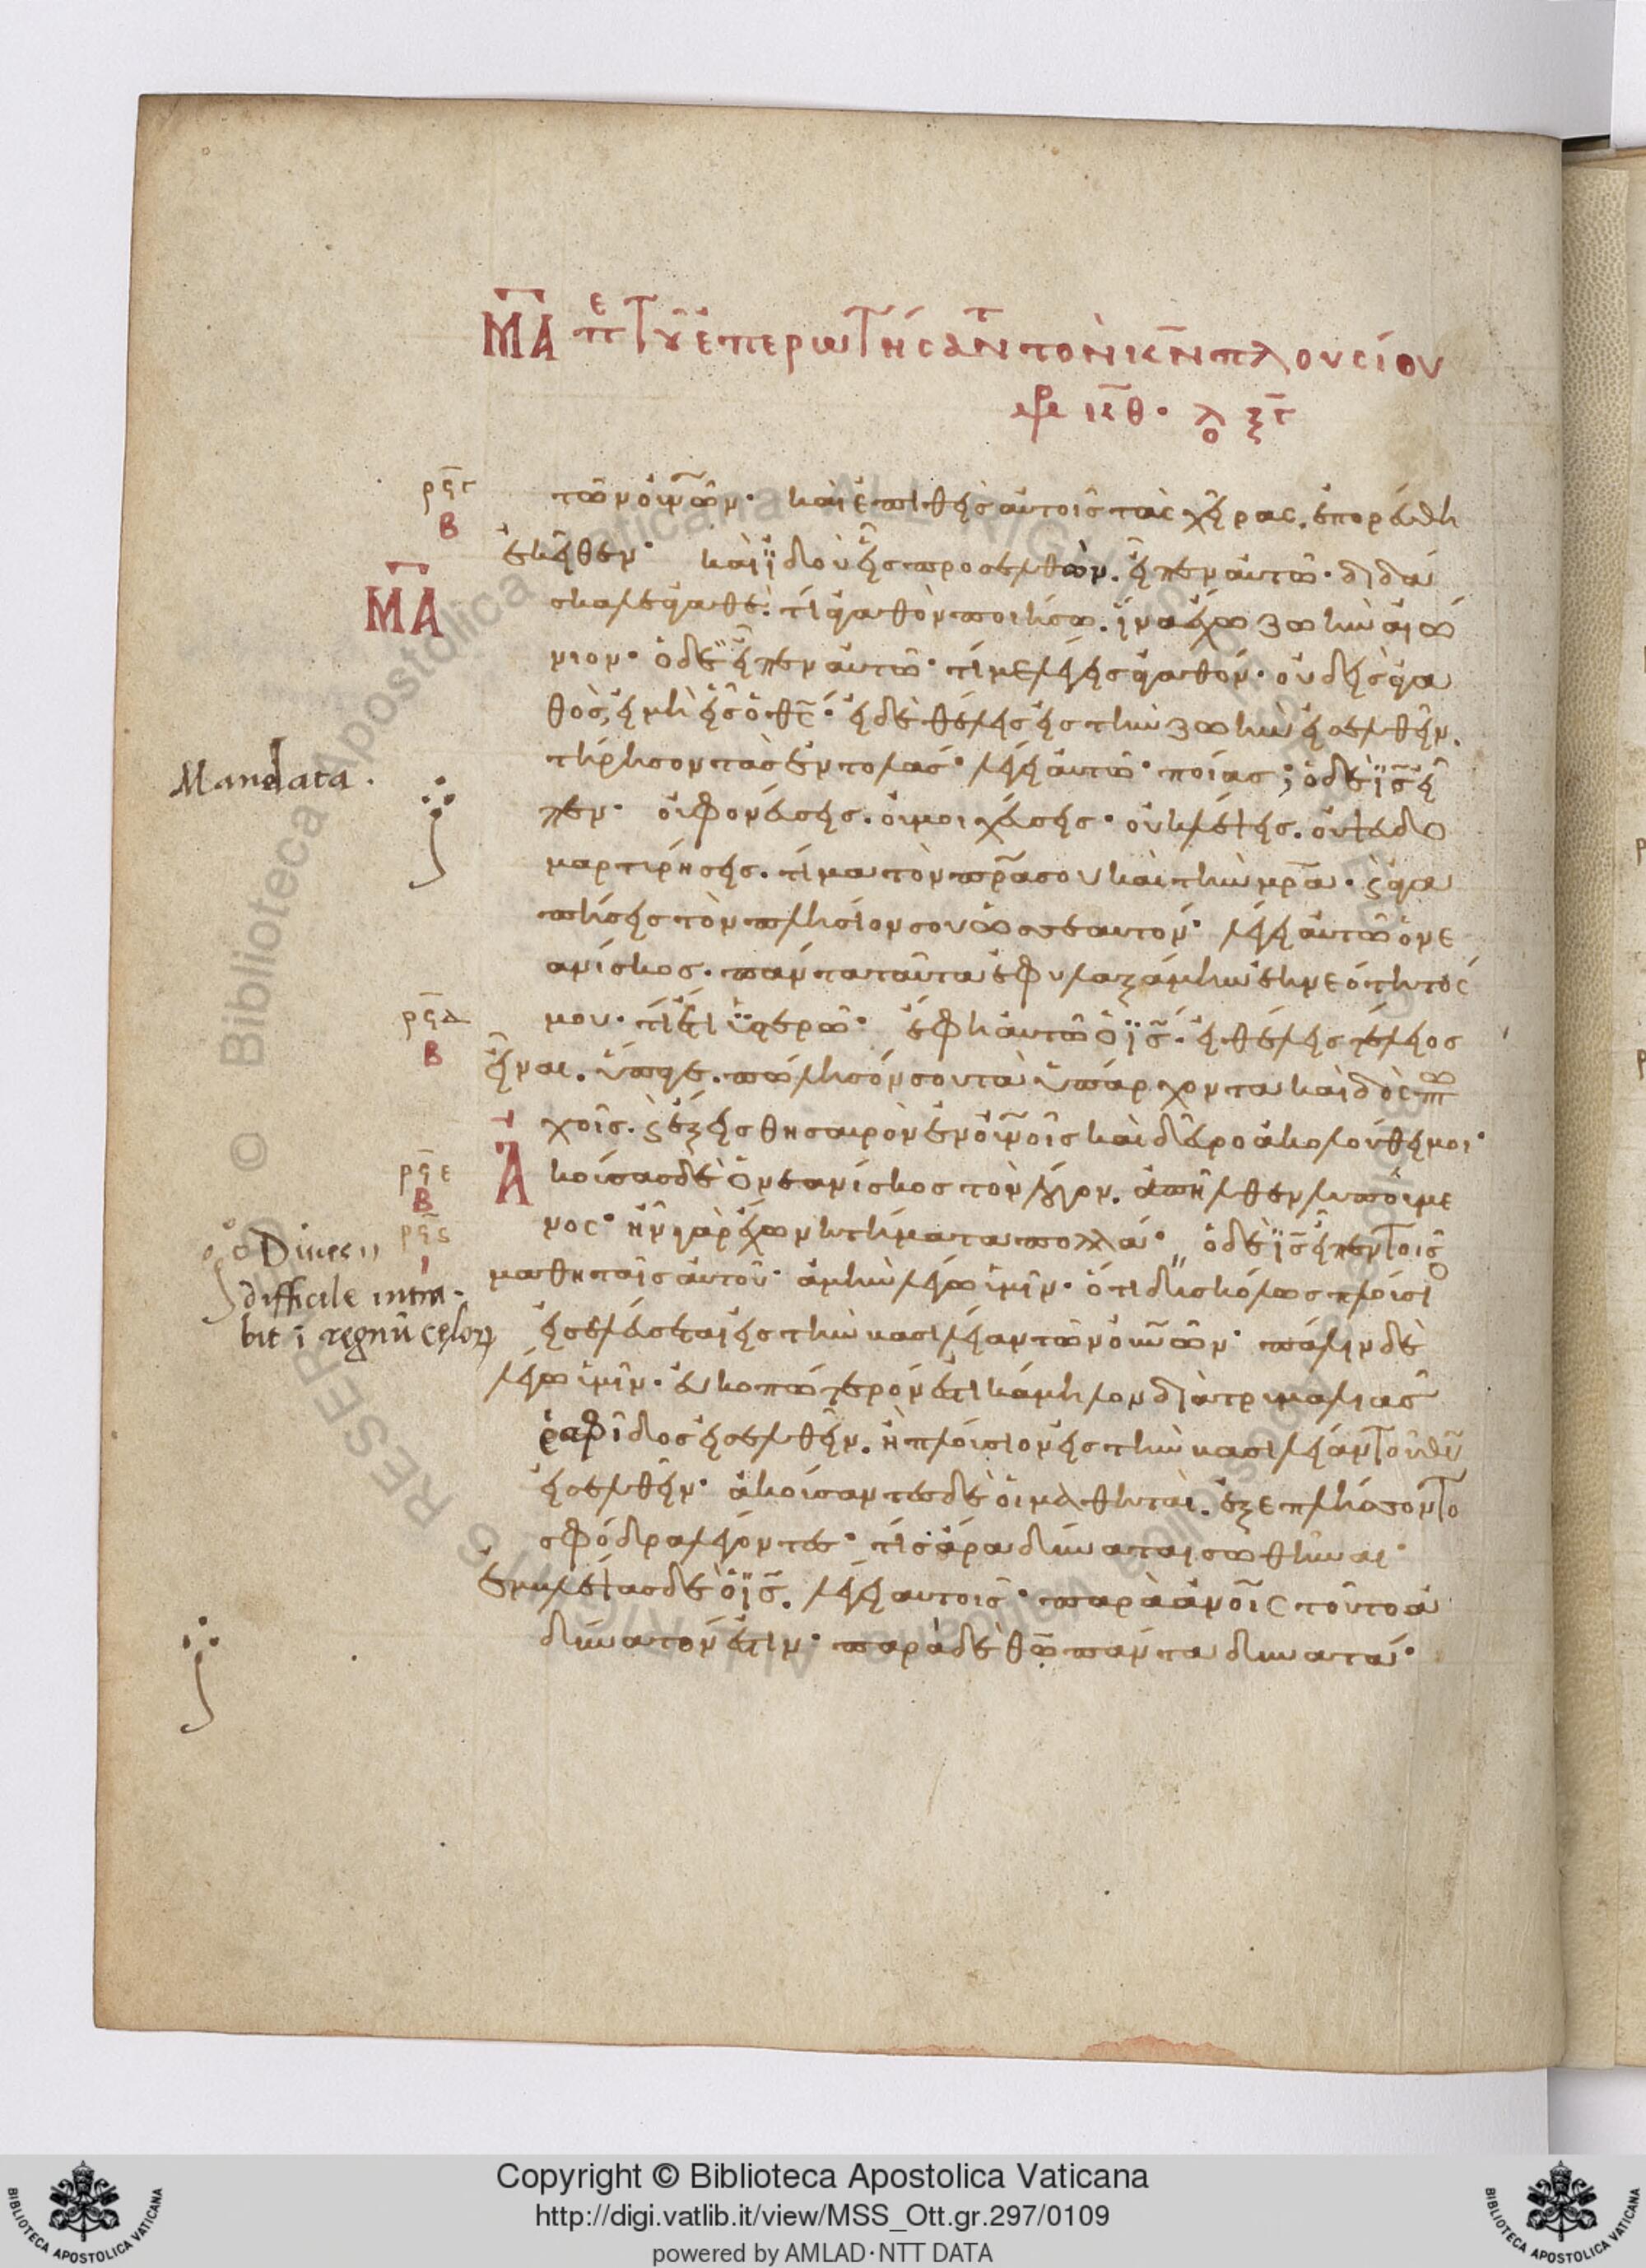 ΜΑ περὶ τοῦ ἐπερωτήσαντος τὸν ἰν πλουσίου
κε θ· λο ξτ
ρϟγ τῶν οὐνῶν· καὶ ἐπιθεὶς αὐτοῖς τὰς χεῖρας. ἐπορεύθη
Β ἐκεῖθεν· καὶ ἰδοὺ εἷς προσελθὼν. εἶπεν αὐτῶ· διδά
ΜΑ σκαλε ἀγαθέ. τί ἀγαθὸν ποιήσω. ἵνα ἔχω ζωὴν αἰώ
νιον· ὁ δὲ εἶπεν αὐτῶ· τί με λέγεις ἀγαθόν· οὐδεὶς ἀγα
θὸς, εἰ μὴ εἷς ὁ θς· εἰ δὲ θέλεις εἰς τὴν ζωὴν εἰσελθεῖν.
Mandata. τήρησον τὰς ἐντολάς· λέγει αὐτῶ· ποίας; ὁ δὲ ις εἶ
πεν· οὐ φονεύσεις. οὐ μοιχεύσεις· οὐ κλέψεις. οὐ ψευδο
μαρτυρήσεις. τίμα τὸν πρα σου καὶ τὴν μρα· ϗ ἀγα
πήσεις τὸν πλησίον σου ὡς σεαυτόν· λέγει αὐτῶ ὁ νε
ανίσκος. πάντα ταῦτα ἐφυλαξάμην ἐκ νεότητός
ρϟδ μου· τί ἔτι ὑστερῶ· ἔφη αὐτῶ ὁ ις. εἰ θέλεις τέλειος
Β εἶναι. ὕπαγε. πώλησόν σου τὰ ὑπάρχοντα καὶ δὸς πτω
χοῖς. ϗ ἕξεις θησαυρὸν ἐν οὐνοῖς καὶ δεῦρο ἀκολούθει μοι·
ρϟε Ἀκούσας δὲ ὁ νεανίσκος τὸν λόγον. ἀπῆλθεν λυπούμε
Β
ρϟϛ νος· ἦν γὰρ ἔχων κτήματα πολλά· ὁ δὲ ις εἶπεν τοῖς
Diues
μαθηταῖς αὐτοῦ· ἀμὴν λέγω ὑμῖν· ὅτι δυσκόλως πλούσι
difficile intra-
bit ī regnū cęloꝝ εἰσελεύσεται εἰς τὴν βασιλείαν τῶν οὐνῶν· πάλιν δὲ
λέγω ὑμῖν· εὐκοπώτερόν ἐστι κάμηλον διὰ τρυμαλιᾶς
ῥαφίδος εἰσελθεῖν. ἢ πλούσιον εἰς τὴν βασιλείαν τοῦ θυ
εἰσελθεῖν· ἀκούσαντες δὲ οἱ μαθηταὶ. ἐξεπλήσσοντο
σφόδρα λέγοντες· τίς ἄρα δύναται σωθῆναι·
ἐμβλέψας δὲ ὁ ις. λέγει αὐτοῖς· παρὰ ἀνοις τοῦτο ἀ
δύνατόν ἐστιν· παρὰ δὲ θω πάντα δυνατά·
Copyright © Biblioteca Apostolica Vaticana
http://digi.vatlib.it/view/MSS_Ott.gr.297/0109
powered by AMLAD·NTT DATA